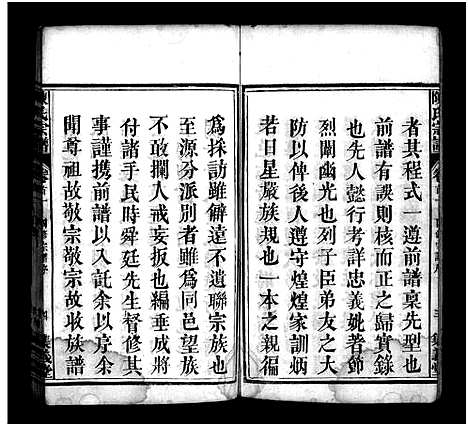 陳氏宗譜
者其程式一遵前譜稟先型也
前譜有誤則核而正之歸實錄
也先人懿行考詳忠義姚耆節
烈闡幽光也列子臣弟友之大
防以俾後人遵守煌煌家訓炳
若日星嚴族規也一本之親徧
爲採訪雖僻遠不遺聯宗族也
至源分派別者雖爲同邑望族
不敢攔入戒妄扳也編垂成將
付諸手民時舜廷先生督修其
事謹攜前譜以入託余以序余
聞尊祖故敬宗敬宗故收族譜
陳氏宗譜